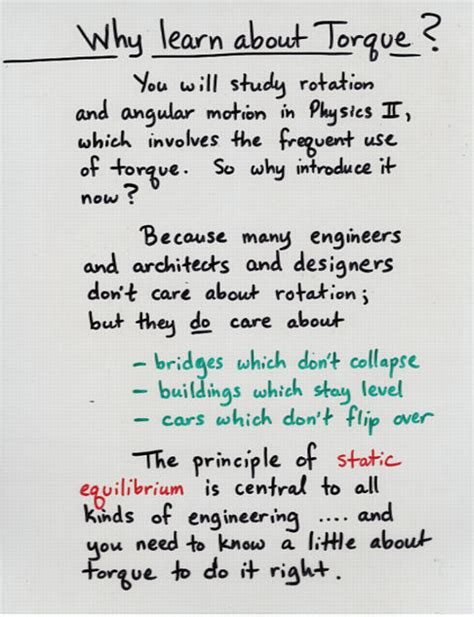 Why learn about Torque?
You will study rotation
and angular motion in Physics II,
which involves the frequent use
of torque. So why introduce it
now?
Because many engineers
and architects and designers
don't care about rotation;
but they do care about
- bridges which don't collapse
- buildings which stay level
- cars which don't flip over
The principle of static
equilibrium is central to all
kinds of engineering .... and
you need to know a little about
torque to do it right.